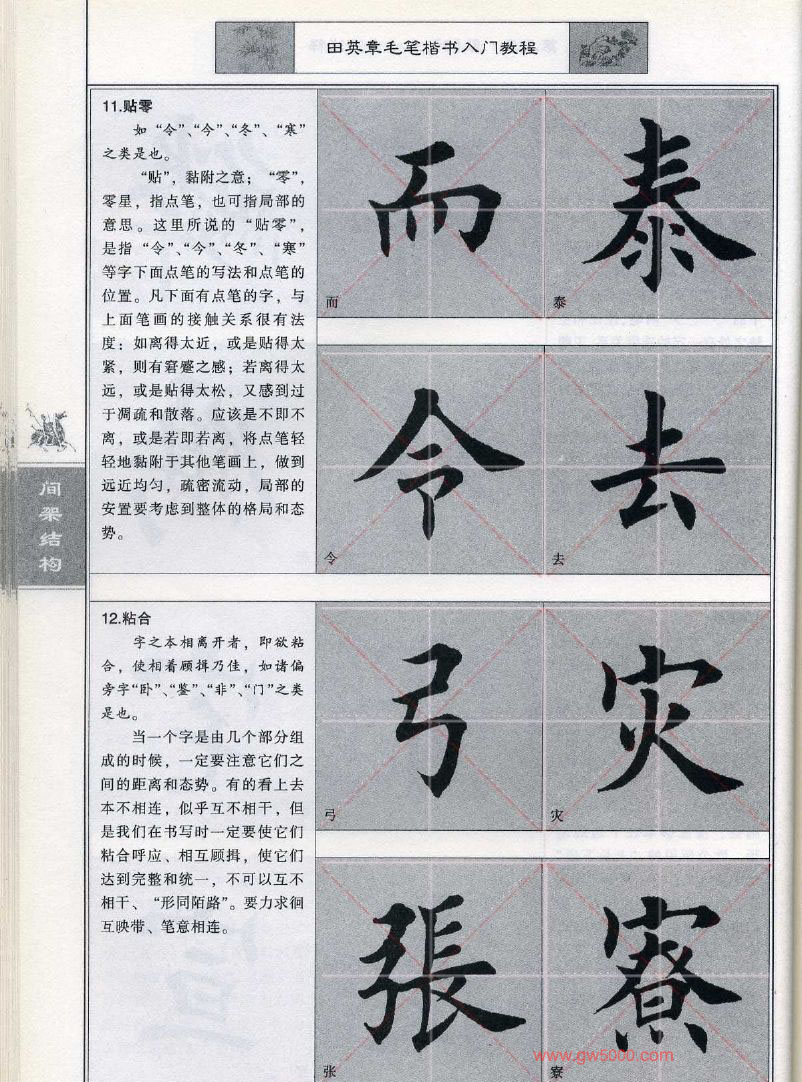 田英章毛笔楷书入门教程
11.贴零
如“令”、“今”、“冬”、“寒”
之类是也。
“贴”，黏附之意；“零”，
零星，指点笔，也可指局部的
意思。这里所说的“贴零”，
是指“令”、“今”、“冬”、“寒”
等字下面点笔的写法和点笔的
位置。凡下面有点笔的字，与
上面笔画的接触关系很有法
度：如离得太近，或是贴得太
紧，则有窘蹙之感；若离得太
远，或是贴得太松，又感到过
于凋疏和散落。应该是不即不
离，或是若即若离，将点笔轻
轻地黏附于其他笔画上，做到
远近均匀，疏密流动，局部的
安置要考虑到整体的格局和态
势。
而
而
泰
泰
令
令
去
去
间架结构
12.粘合
字之本相离开者，即欲粘
合，使相着顾揖乃佳，如诸偏
旁字“卧”、“鉴”、“非”、“门”之类
是也。
当一个字是由几个部分组
成的时候，一定要注意它们之
间的距离和态势。有的看上去
本不相连，似乎互不相干，但
是我们在书写时一定要使它们
粘合呼应、相互顾揖，使它们
达到完整和统一，不可以互不
相干、“形同陌路”。要力求徊
互映带、笔意相连。
弓
弓
灾
灾
張
张
寮
寮
www.gw5000.com